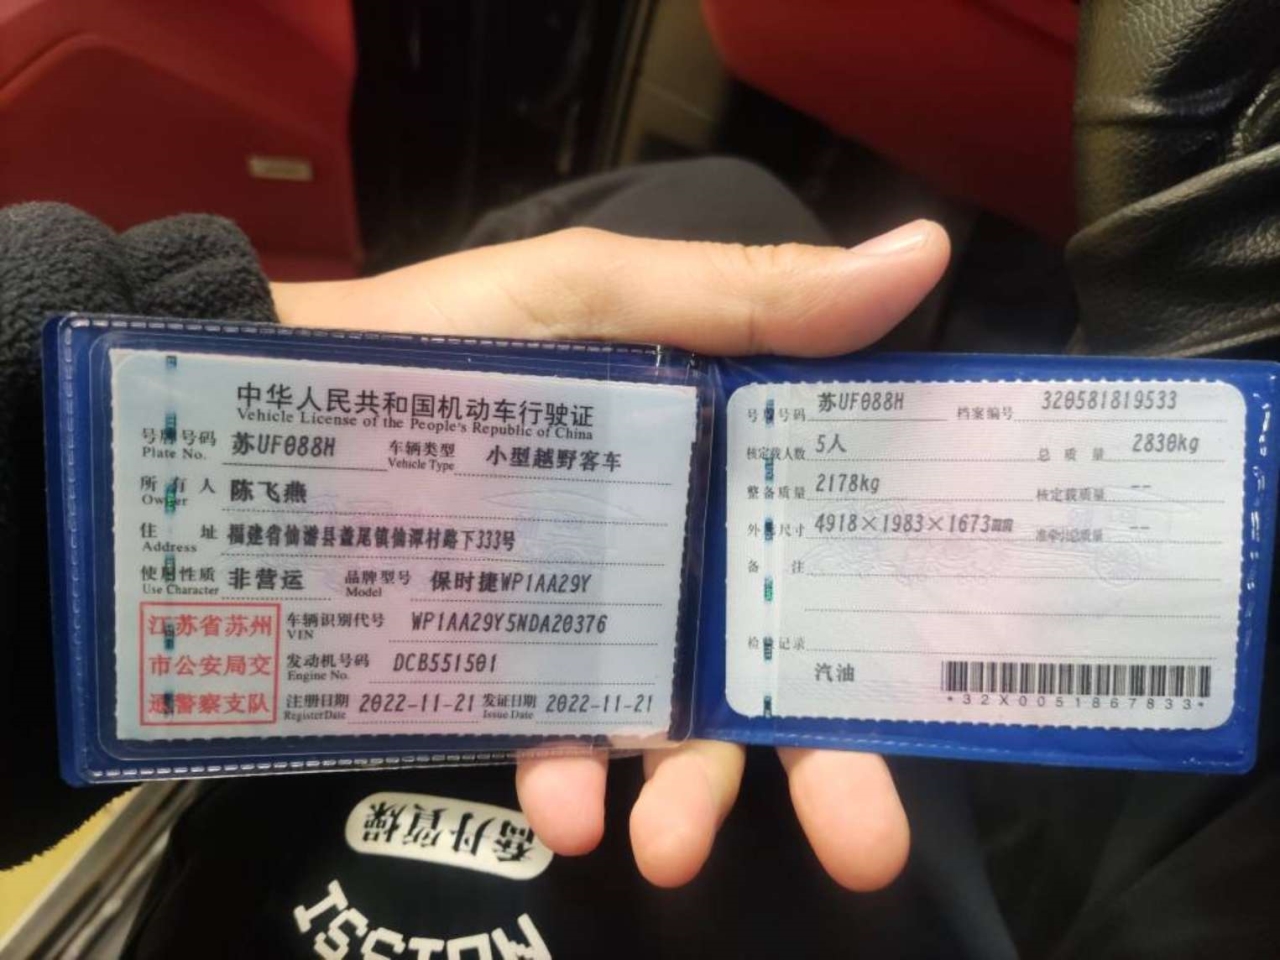 中华人民共和国机动车行驶证
Vehicle License of the People's Republic of China
号牌号码 苏UF088H 车辆类型 小型越野客车
Plate No. Vehicle Type
所有人 陈飞燕
Owner
住址 福建省仙游县盖尾镇仙潭村路下333号
Address
使用性质 非营运 品牌型号 保时捷WP1AA29Y
Use Character Model
江苏省苏州
市公安局交
通警察支队
车辆识别代号 WP1AA29Y5NDA20376
VIN
发动机号码 DCB551501
Engine No.
注册日期 2022-11-21 发证日期 2022-11-21
Register Date Issue Date
号牌号码 苏UF088H 档案编号 320581819533
核定载人数 5人 总质量 2830kg
整备质量 2178kg 核定载质量 --
外廓尺寸 4918×1983×1673mm 准牵引总质量 --
备注
检验记录
汽油
*32X0051867833*
喬丹質燥
ISSION